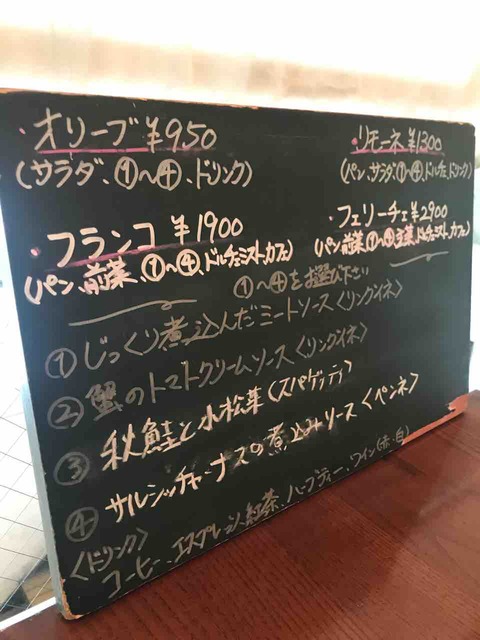 ・オリーブ ¥950
(サラダ、①〜④、ドリンク)
・リモーネ ¥1300
(パン、サラダ、①〜④、ドルチェ、ドリンク)
・フランコ ¥1900
(パン、前菜、①〜④、ドルチェミスト、カフェ)
・フェリーチェ ¥2900
(パン、前菜、①〜④、主菜、ドルチェミスト、カフェ)
①〜④をお選び下さい
① じっくり煮込んだミートソース〈リングイネ〉
② 蟹のトマトクリームソース〈リングイネ〉
③ 秋鮭と小松菜〈スパゲッティ〉
④ サルシッチャとナスの煮込みソース〈ペンネ〉
〈ドリンク〉
コーヒー、エスプレッソ、紅茶、ハーブティー、ワイン(赤、白)